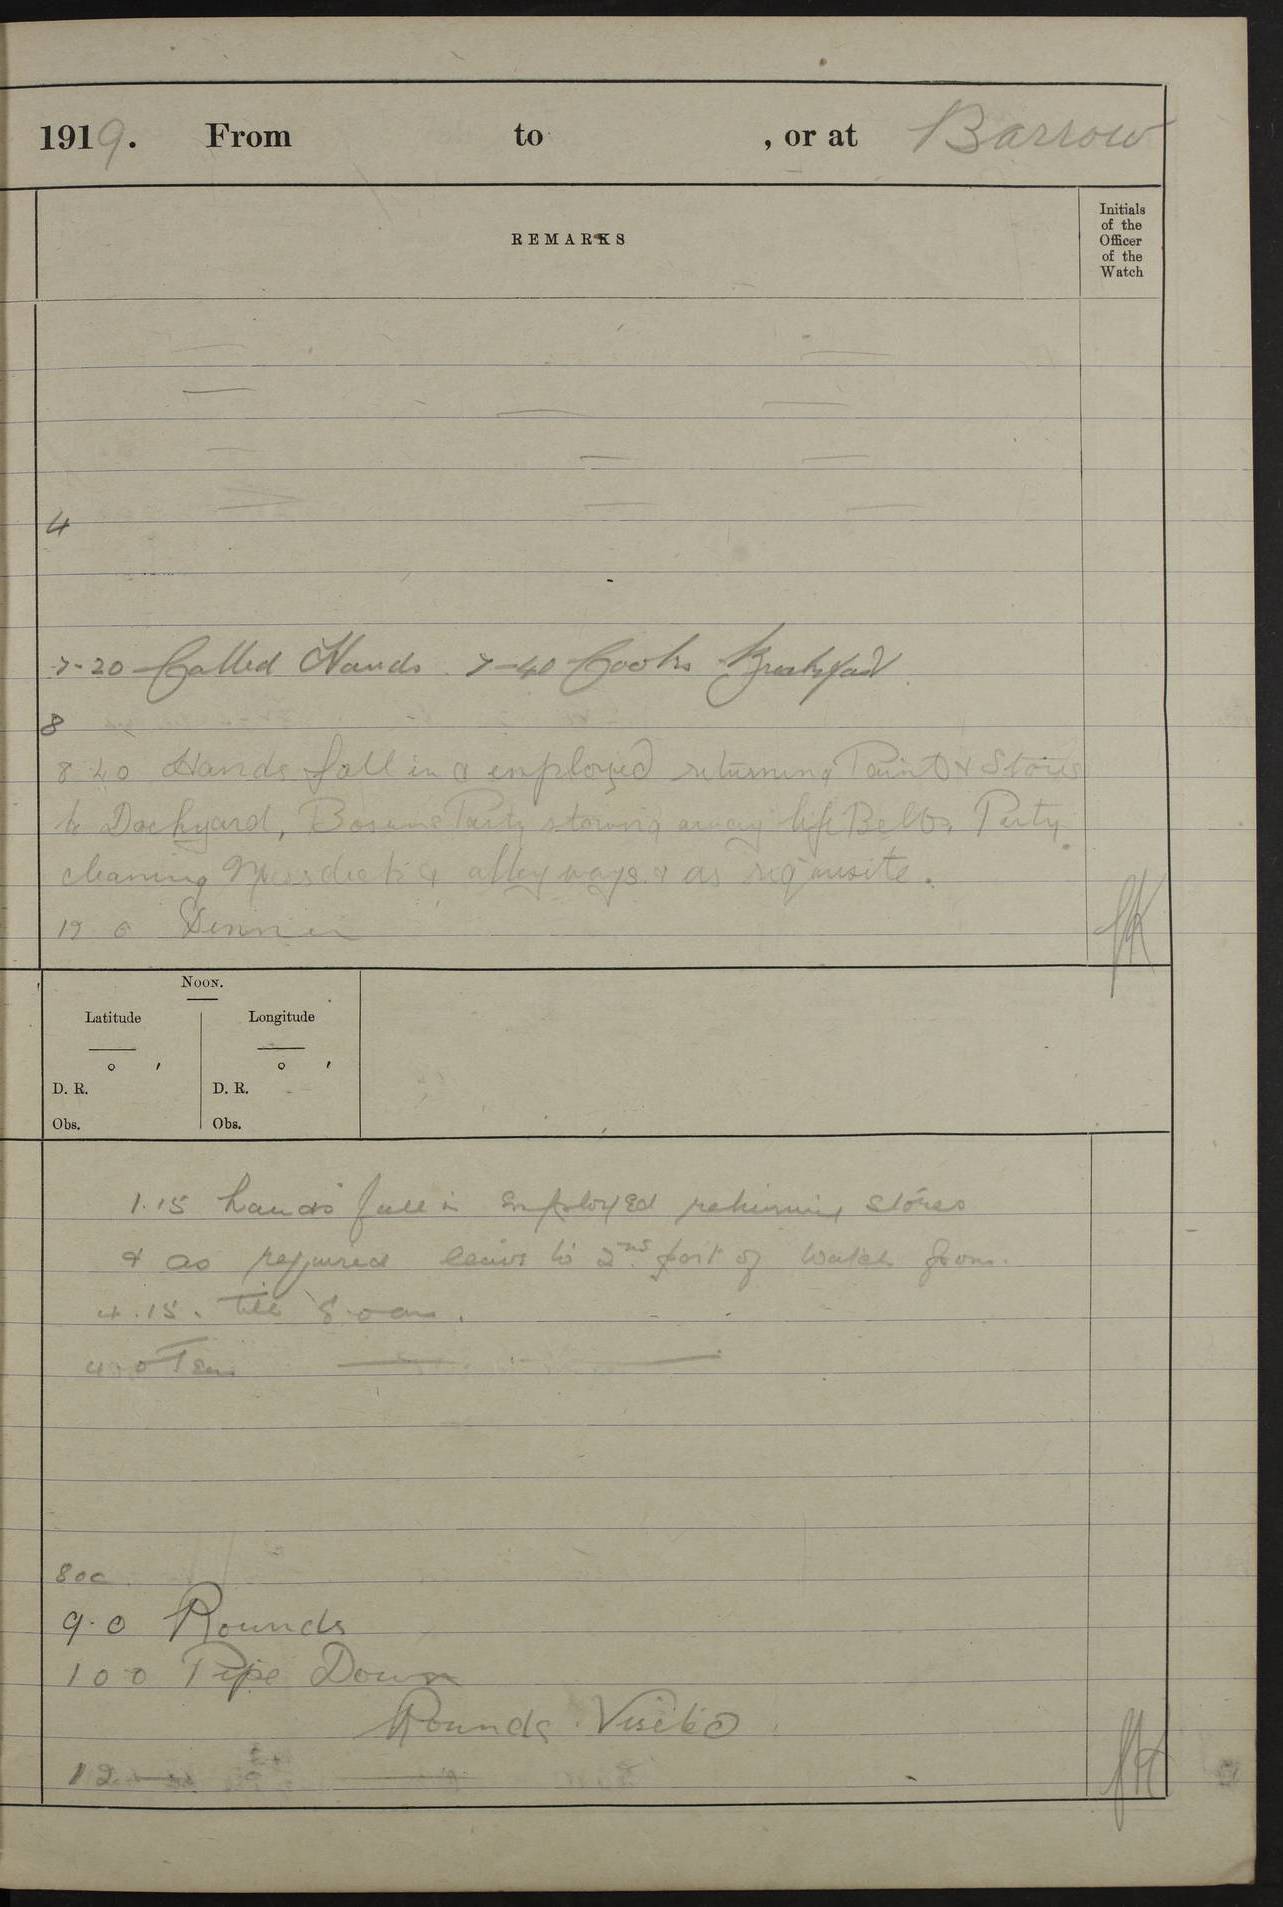 1919. From to , or at Barrow
REMARKS
Initials
of the
Officer
of the
Watch
4
7-20 Called Hands. 7-40 Cooks Breakfast
8
8 40 Hands fall in & employed returning Paint & Stores
to Dockyard, Bosuns Party stowing away life Belts, Party
cleaning Messdecks & alleyways & as requisite.
12 0 Dinner
Noon.
Latitude Longitude
° ′ ° ′
D. R. D. R.
Obs. Obs.
1.15 hands fall in Employed returning stores
& as required leave to 2nd part of Watch from
4.15. till 8.0 am.
4.0 Tea
9.0 Rounds
10 0 Pipe Down
Rounds Visited
12